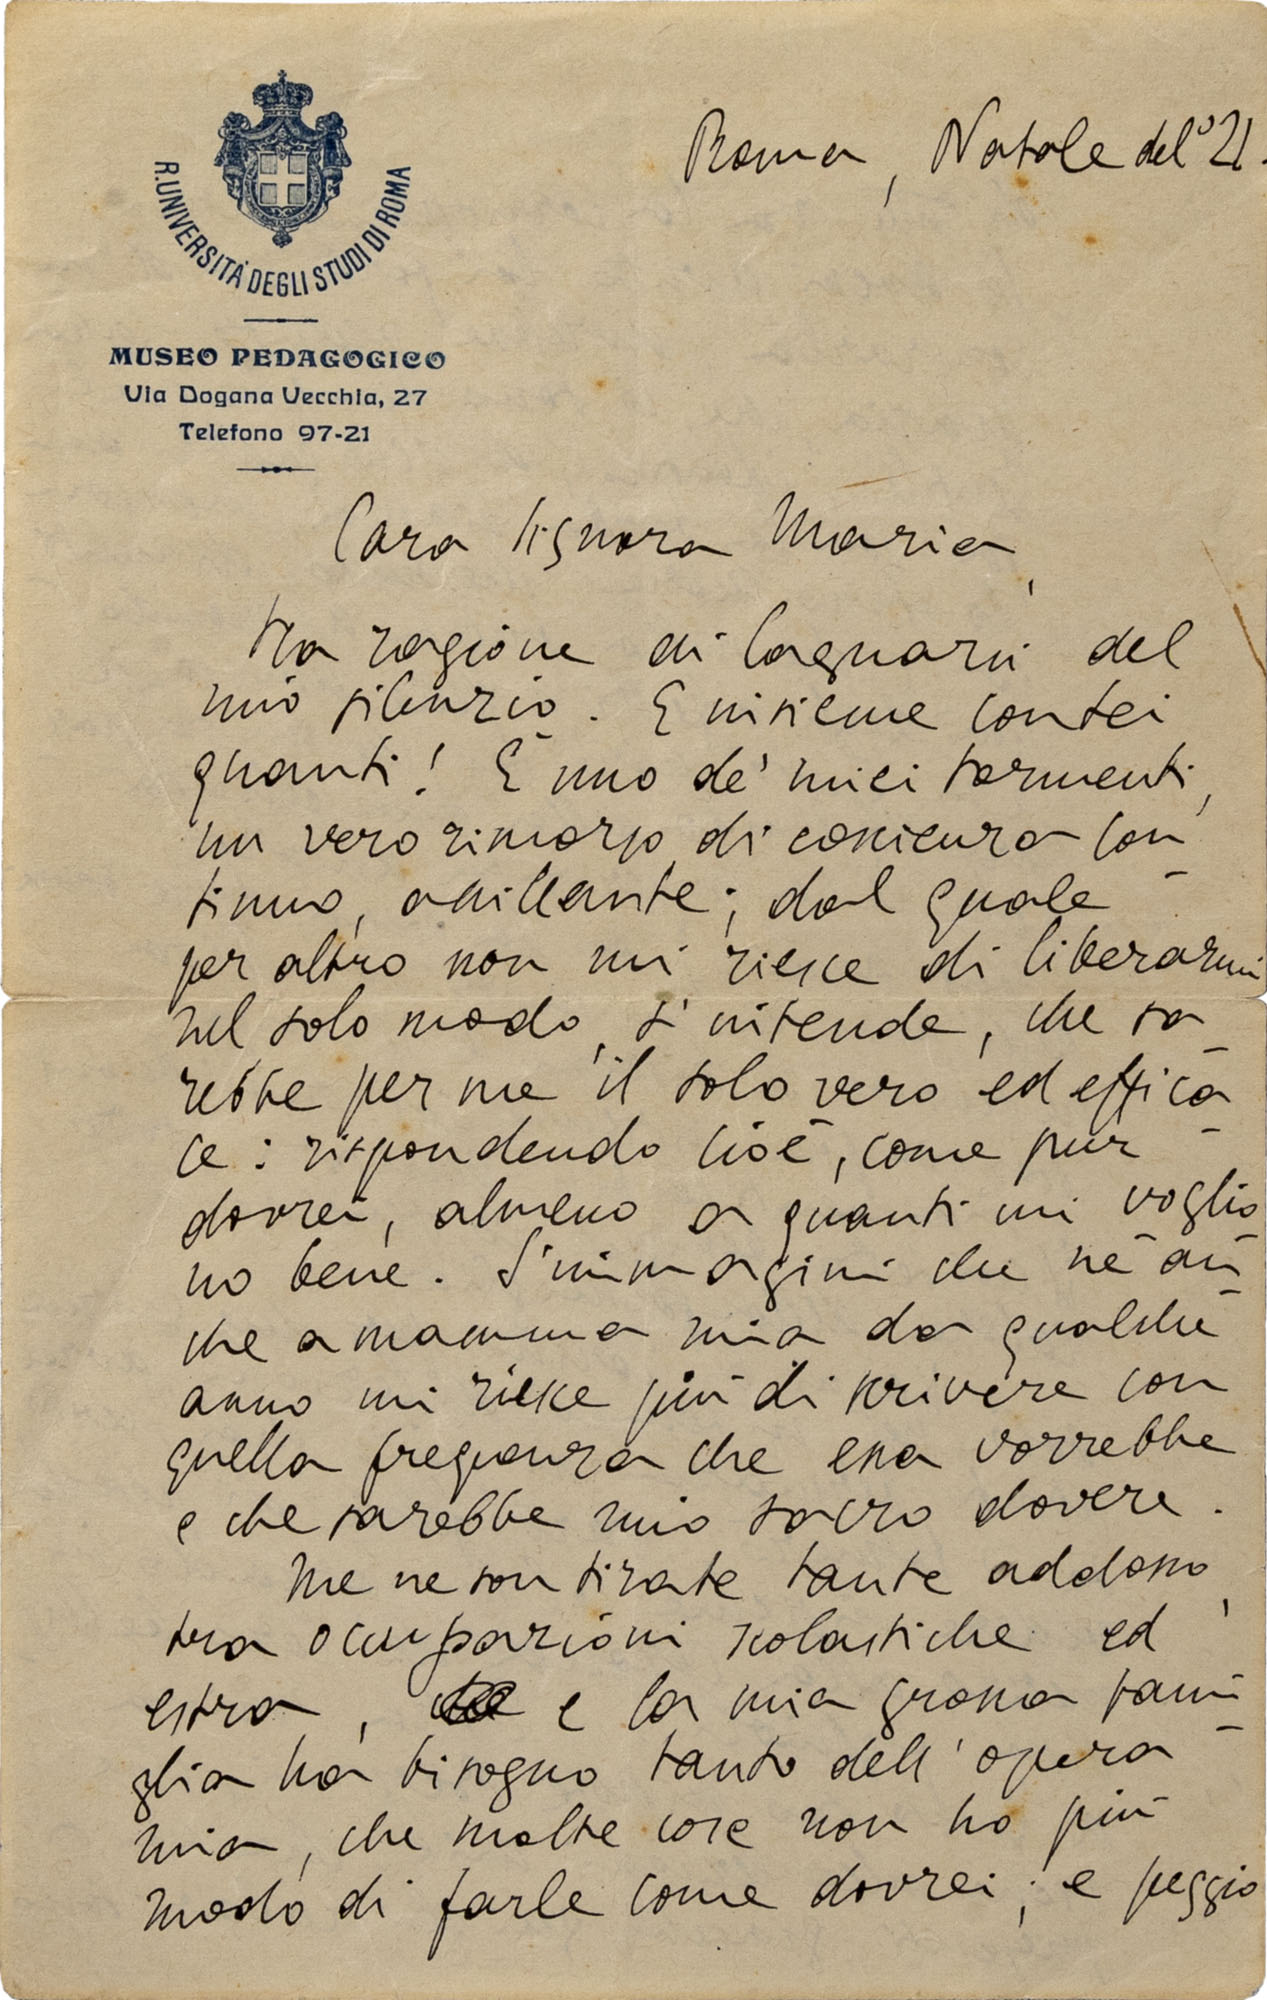 R. UNIVERSITÀ DEGLI STUDI DI ROMA
MUSEO PEDAGOGICO
Via Dogana Vecchia, 27
Telefono 97-21
Roma, Natale del '21.
Cara Signora Maria,
Ha ragione di lagnarsi del
mio silenzio. E insieme con lei
quanti! È uno de' miei tormenti,
un vero rimorso di coscienza con-
tinuo, assillante; dal quale
per altro non mi riesce di liberarmi
nel solo modo, s'intende, che sa-
rebbe per me il solo vero ed effica-
ce: rispondendo cioè, come pur
dovrei, almeno a quanti mi voglio-
no bene. S'immagini che né an-
che a mamma mia da qualche
anno mi riesce più di scrivere con
quella frequenza che essa vorrebbe
e che sarebbe mio sacro dovere.
Me ne son tirate tante addosso,
tra occupazioni scolastiche ed
estra, e la mia grossa fami-
glia ha bisogno tanto dell'opera
mia, che molte cose non ho più
modo di farle come dovrei; e peggio